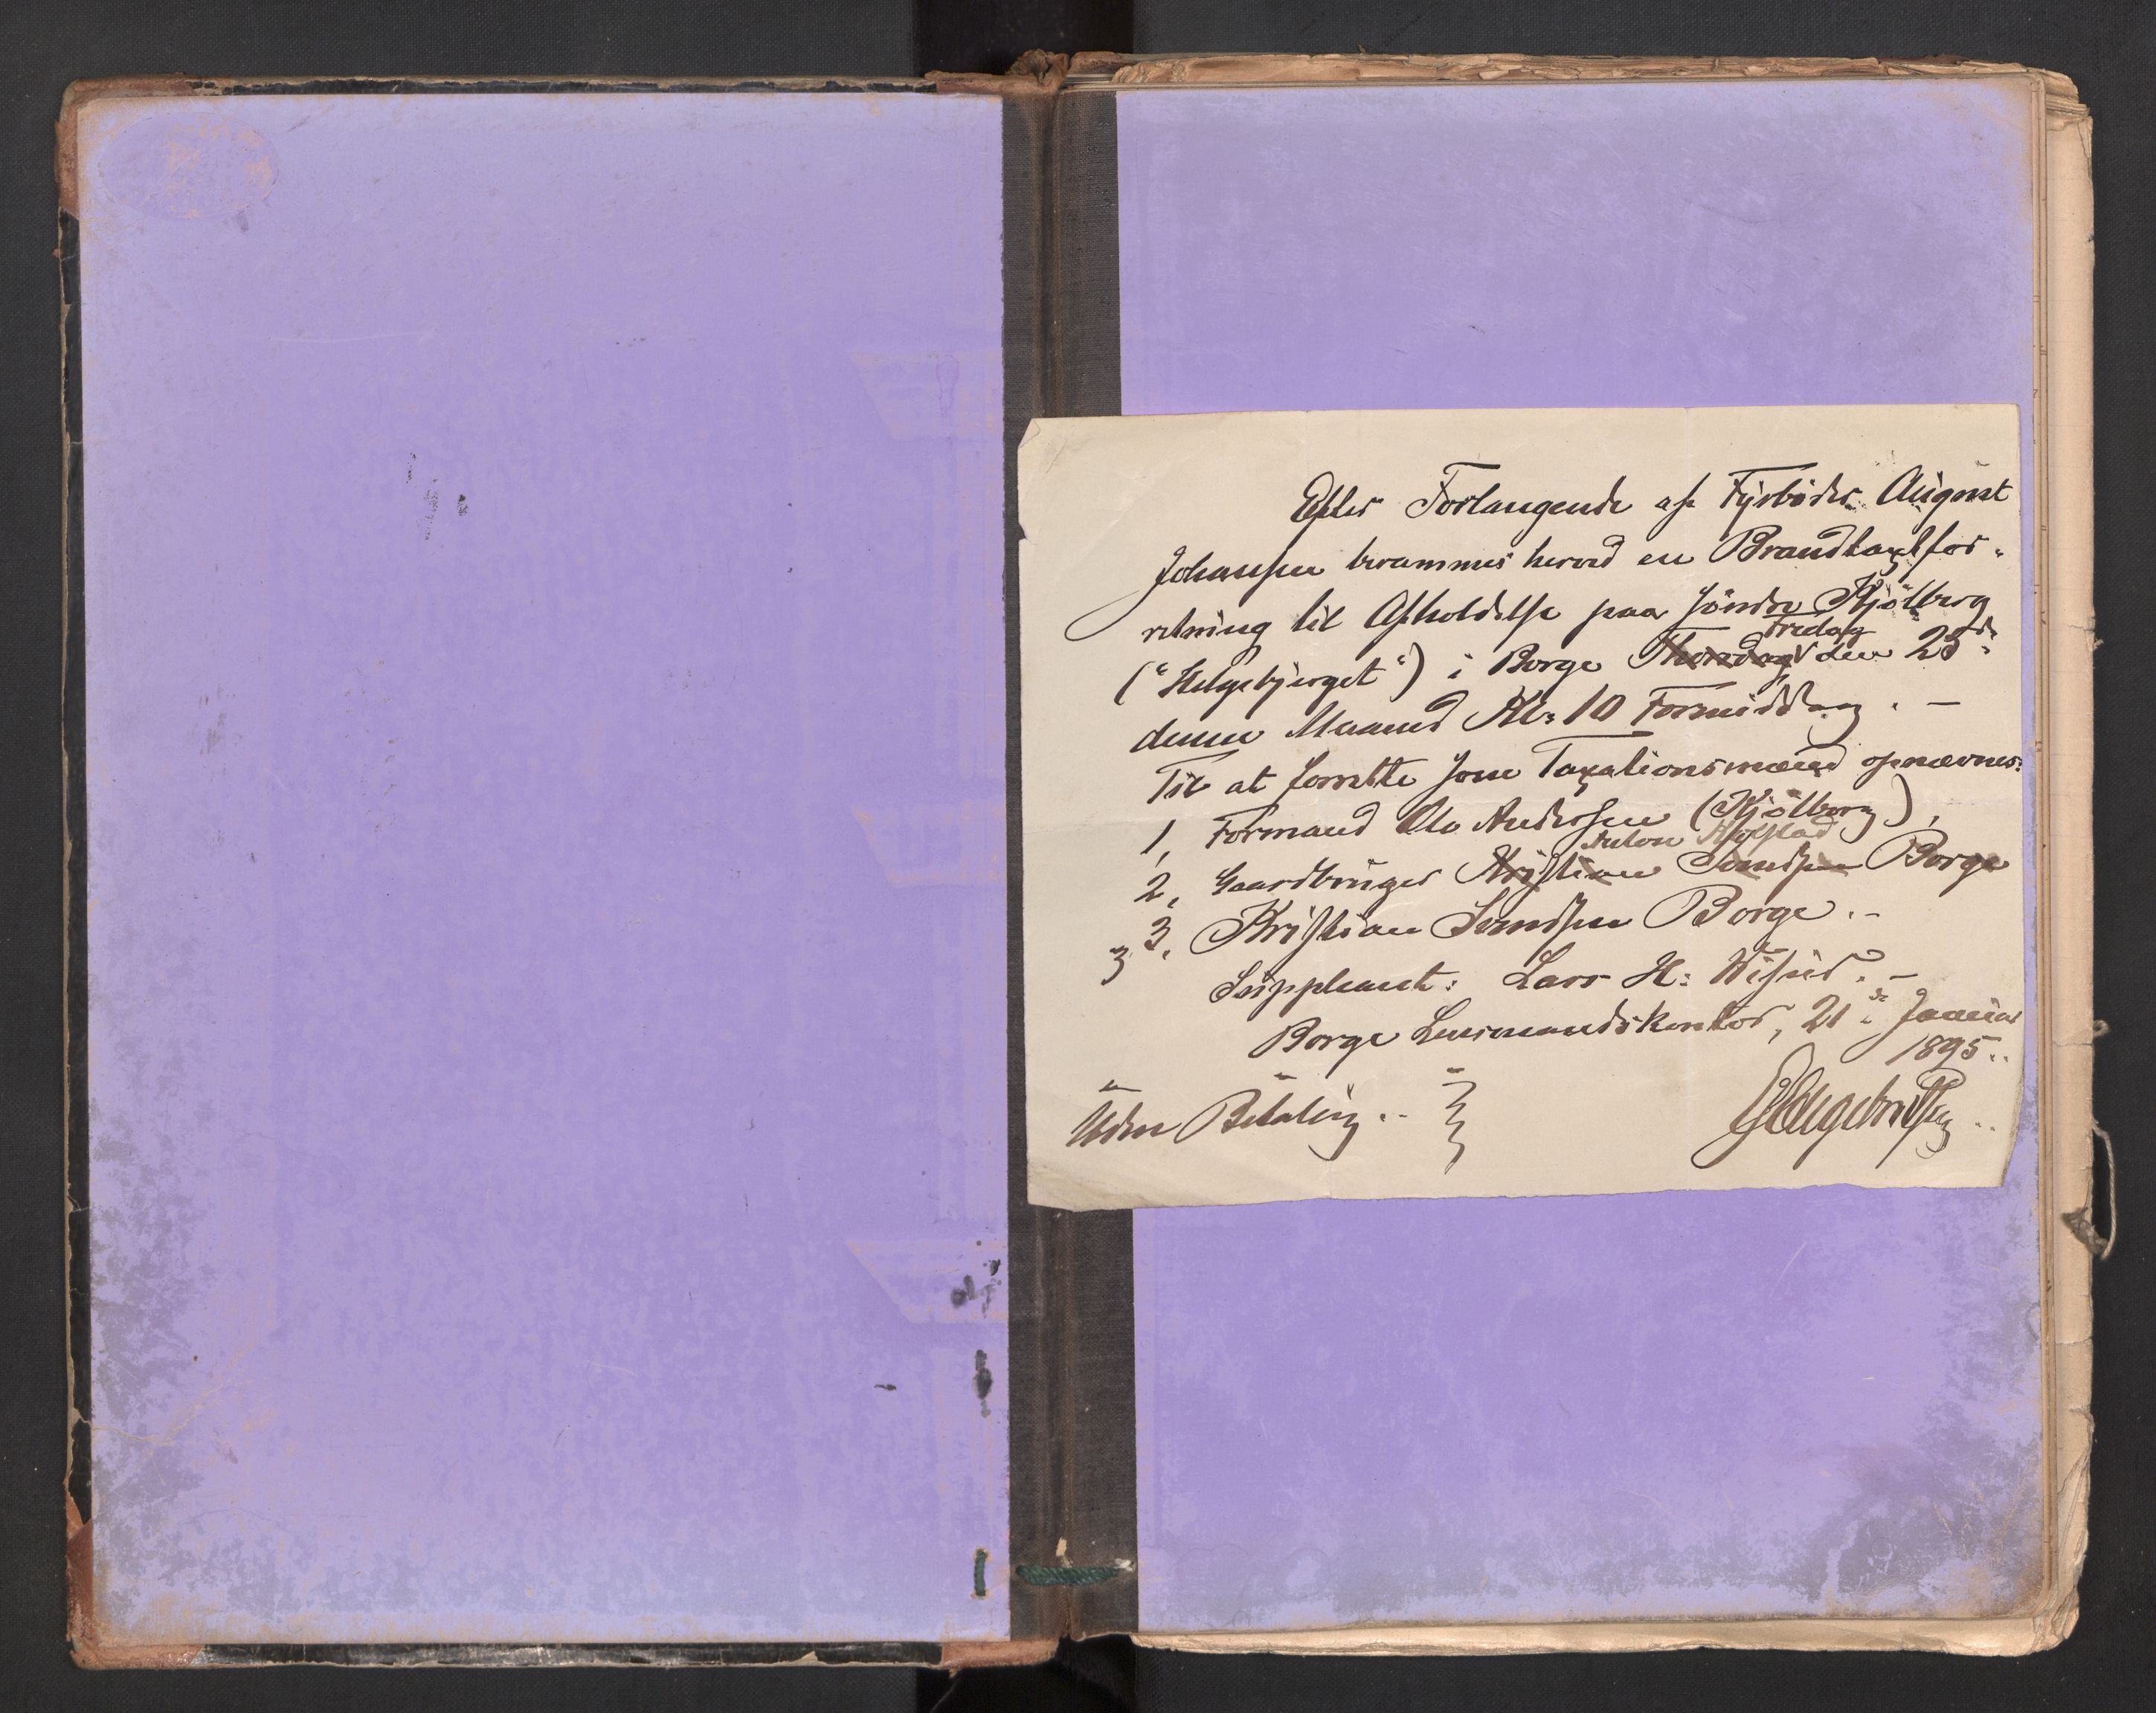 Efter Forlangende af Fyrbøder August
Johansen berammes herved en Brandtaxtfor-
retning til Afholdelse paa søndre Kjølberg
("Helgebjerget") i Borge Thorsdag Fredag den 25de
denne Maaned Kl: 10 Formiddag. —
Til at forrette som Taxationsmænd opnævnes:
1, Formand Ole Andersen (Kjølberg),
Anton
2, Gaardbruger Kristian Svendsen Borge
3 3, Kristian Svendsen Borge. -
Suppleant: Lars H:
Borge Lensmandskontor, 21de Januar
1895..
Uden Betaling..